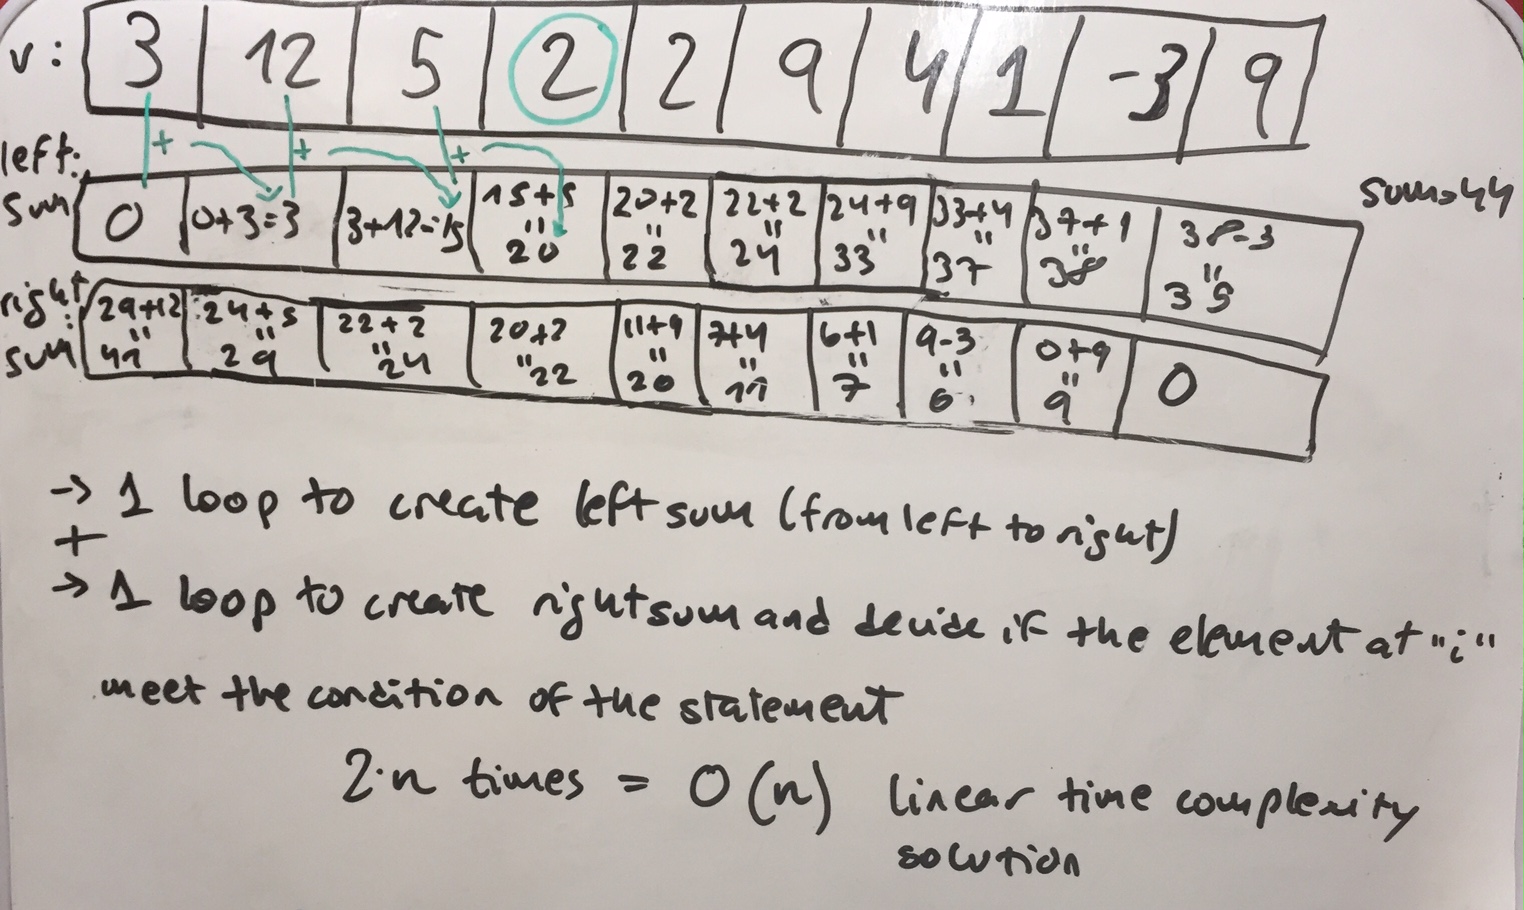 v: 3 12 5 2 2 9 4 1 -3 9
left: + + +
sum 0 0+3=3 3+12=15 15+5 = 20 20+2 = 22 22+2 = 24 24+9 = 33 33+4 = 37 37+1 = 38 38-3 = 35 sum=44
right: sum 29+12 = 41 24+5 = 29 22+2 = 24 20+2 = 22 11+9 = 20 7+4 = 11 6+1 = 7 9-3 = 6 0+9 = 9 0
-> 1 loop to create left sum (from left to right)
+
-> 1 loop to create right sum and decide if the element at "i"
meet the condition of the statement
2·n times = O(n) linear time complexity
solution